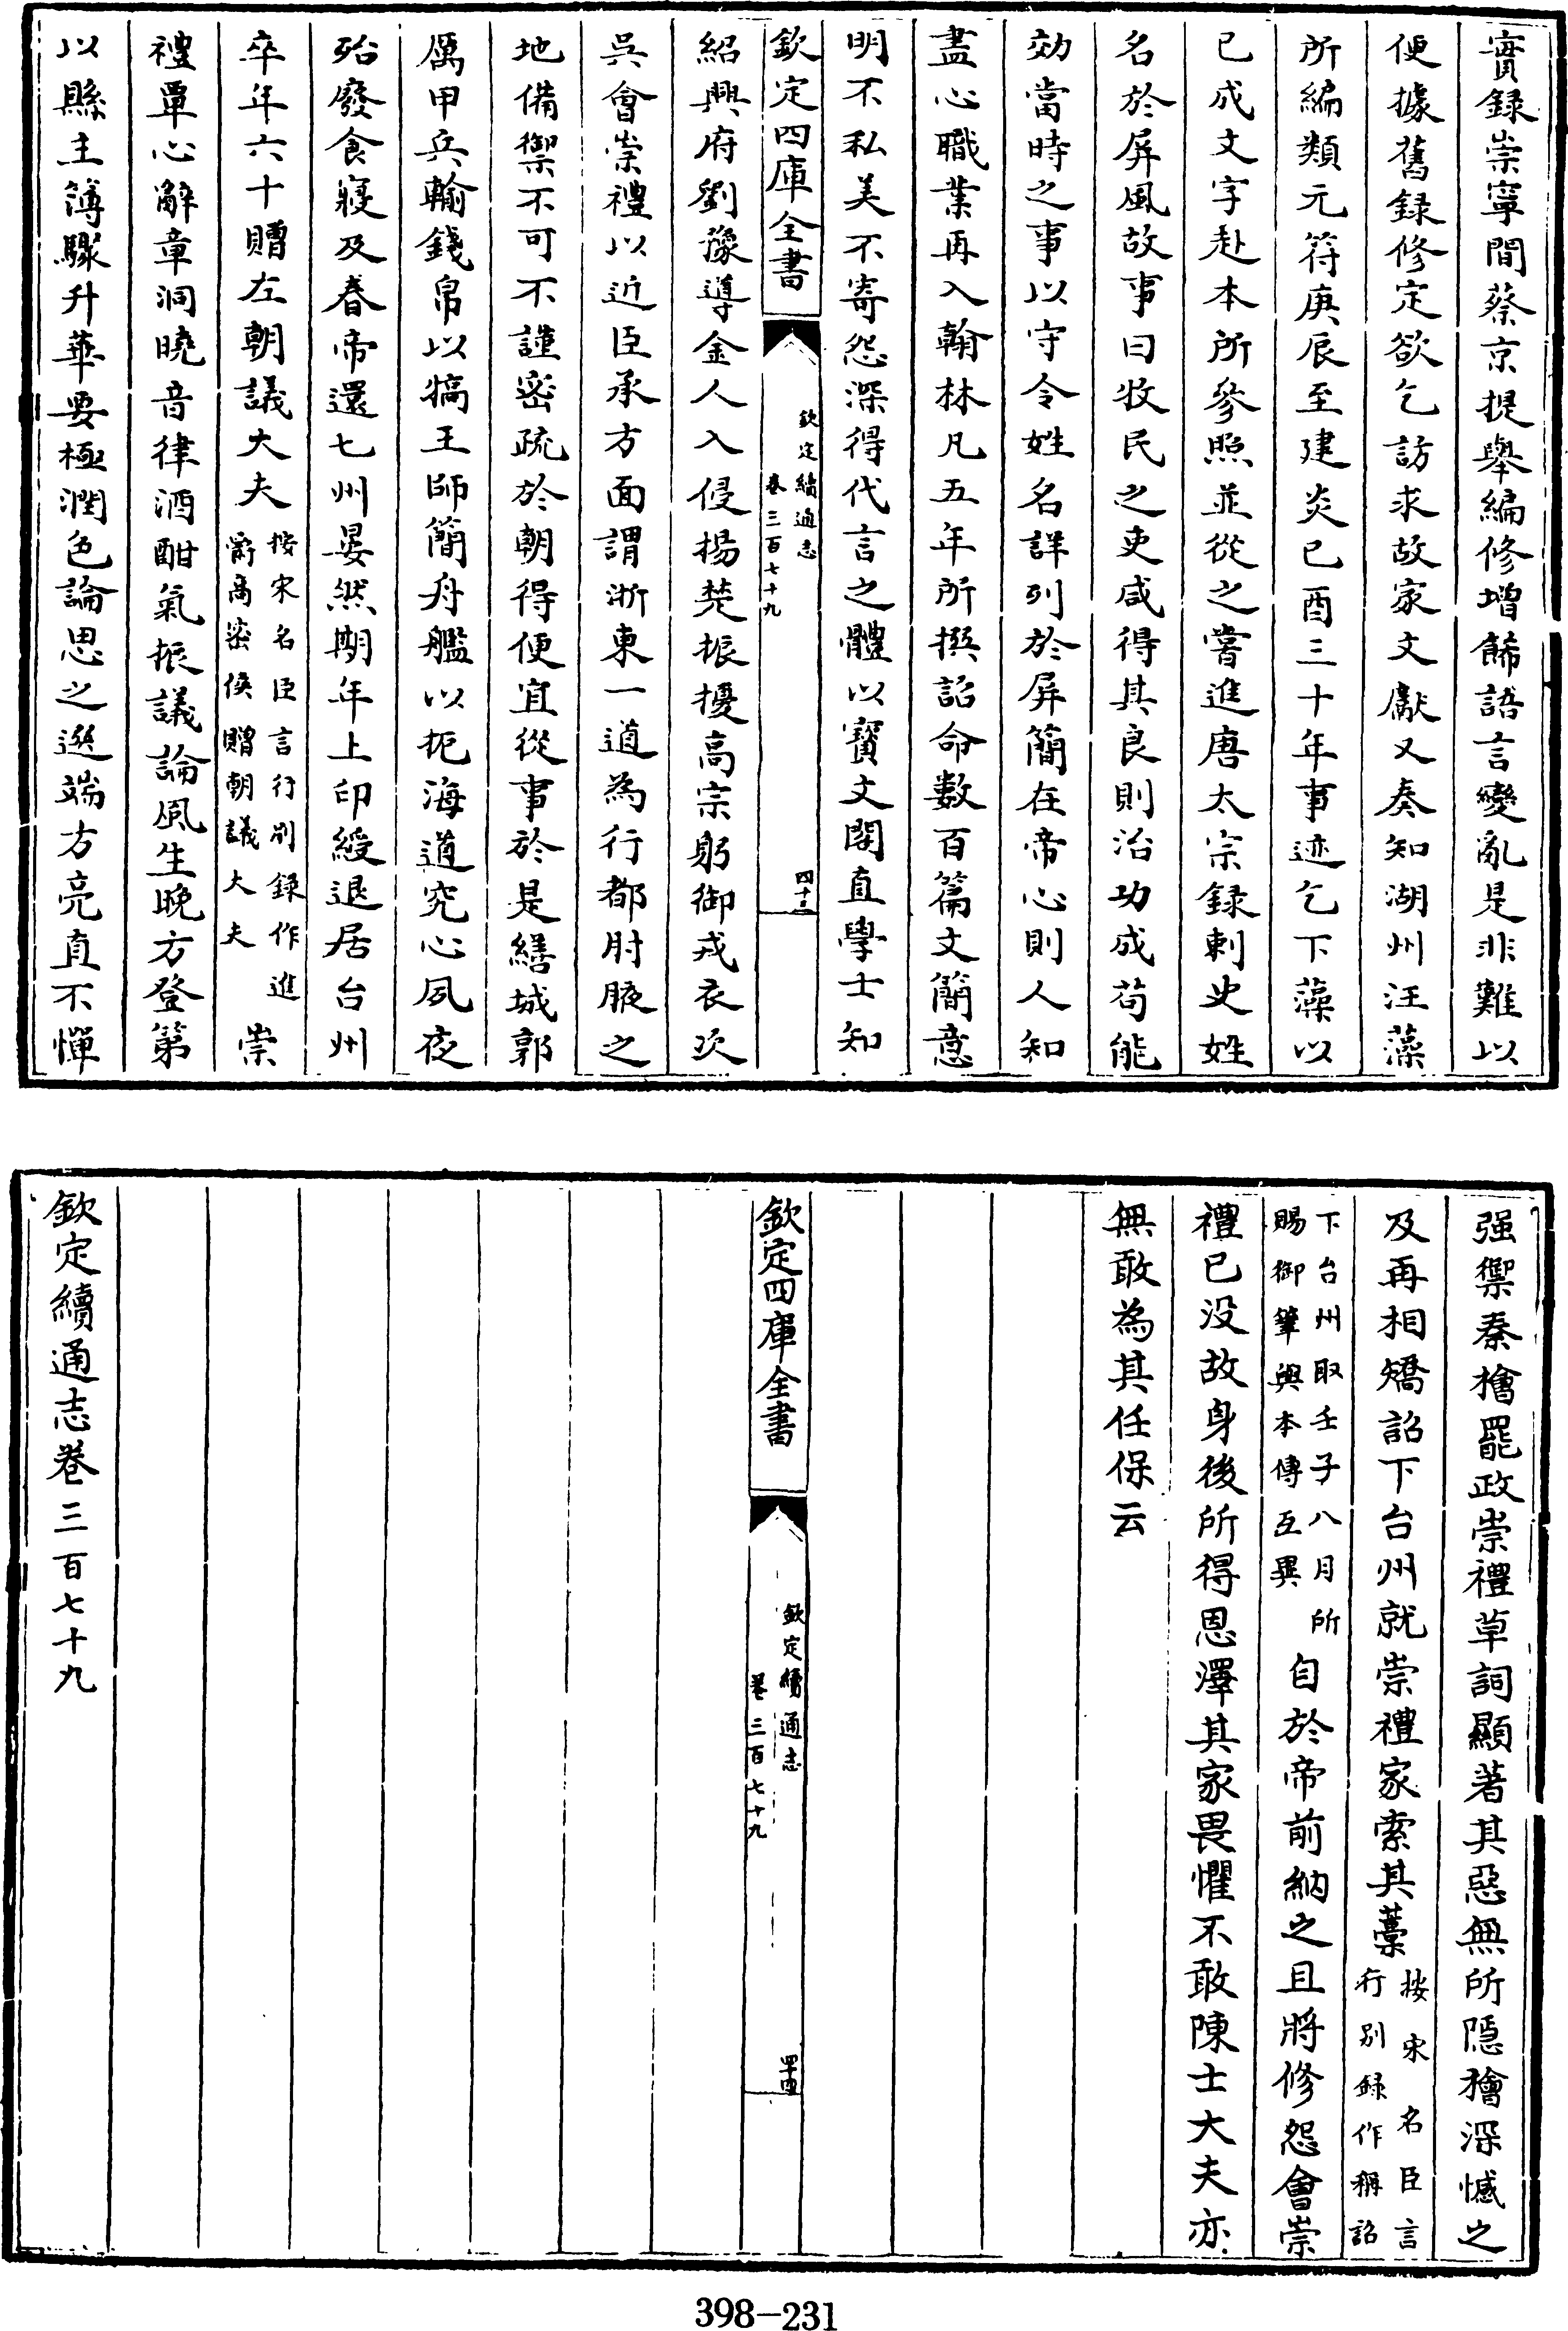 實録崇寧間蔡京提舉編修增餙語言變亂是非難以
便據舊録修定欲乞訪求故家文獻又奏知湖州汪藻
所編類元符庚辰至建炎已酉三十年事迹乞下藻以
已成文字赴本所參照並從之嘗進唐太宗録刺史姓
名於屏風故事曰牧民之吏咸得其良則治功成苟能
効當時之事以守令姓名詳列於屏簡在帝心則人知
盡心職業再入翰林凡五年所撰詔命數百篇文簡意
明不私美不寄怨深得代言之體以寳文閣直學士知
欽定四庫全書
欽定續通志
卷三百七十九
四十三
紹興府劉豫導金人入侵揚楚振擾高宗躬御戎衣次
吳會崇禮以近臣承方面謂浙東一道為行都肘腋之
地備禦不可不謹密疏於朝得便宜從事於是繕城郭
厲甲兵輸錢帛以犒王師簡舟艦以扼海道究心夙夜
殆廢食寢及春帝還七州晏然期年上印綬退居台州
卒年六十贈左朝議大夫
按宋名臣言行别録作進
爵高密侯贈朝議大夫
崇
禮覃心辭章洞曉音律酒酣氣振議論風生晚方登第
以縣主簿驟升華要極潤色論思之選端方亮直不憚
强禦秦檜罷政崇禮草詞顯著其惡無所隱檜深憾之
及再相矯詔下台州就崇禮家索其藁
按宋名臣言
行别録作稱詔
下台州取壬子八月所
賜御筆與本傳互異
自於帝前納之且將修怨會崇
禮已没故身後所得恩澤其家畏懼不敢陳士大夫亦
無敢為其任保云
欽定四庫全書
欽定續通志
卷三百七十九
四十四
欽定續通志卷三百七十九
398-231